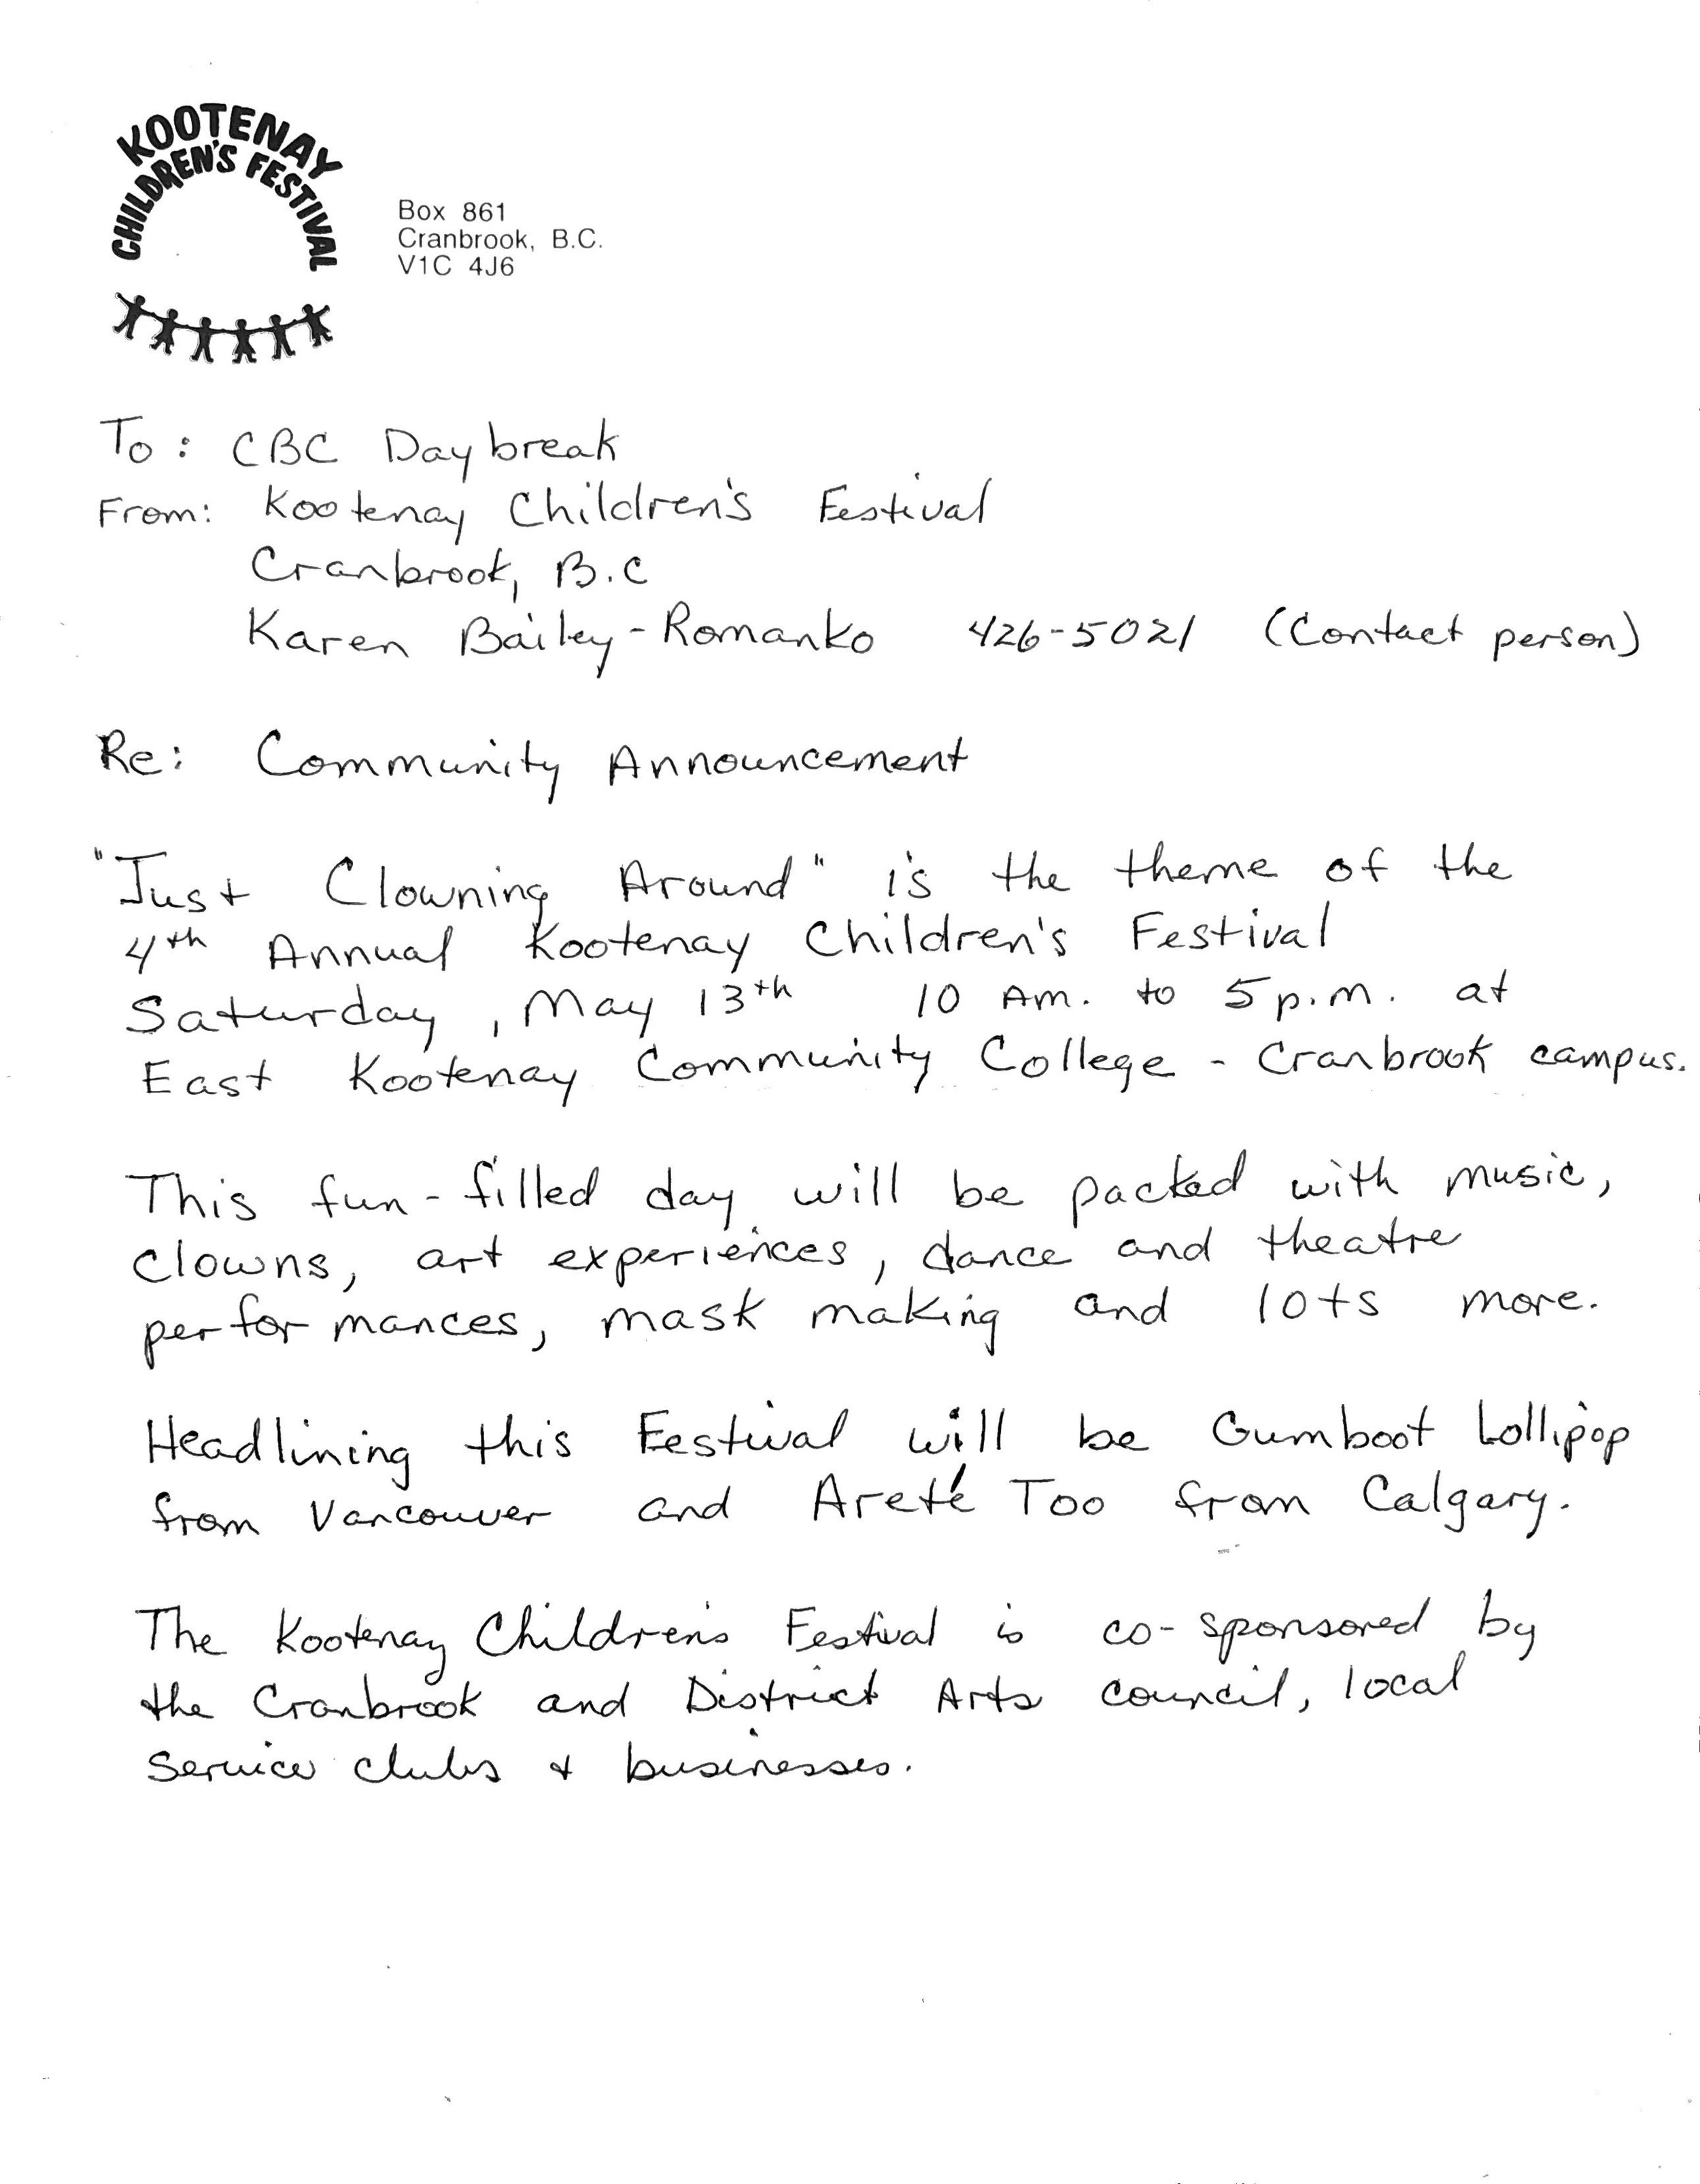 KOOTENAY
CHILDREN'S FESTIVAL
Box 861
Cranbrook, B.C.
V1C 4J6
To: CBC Daybreak
From: Kootenay Children's Festival
Cranbrook, B.C
Karen Bailey-Romanko 426-5021 (Contact person)
Re: Community Announcement
"Just Clowning Around" is the theme of the
4th Annual Kootenay Children's Festival
Saturday, May 13th 10 Am. to 5 p.m. at
East Kootenay Community College - Cranbrook campus.
This fun-filled day will be packed with music,
clowns, art experiences, dance and theatre
performances, mask making and lots more.
Headlining this Festival will be Gumboot Lollipop
from Vancouver and Areté Too from Calgary.
The Kootenay Children's Festival is co-sponsored by
the Cranbrook and District Arts council, local
Service clubs & businesses.